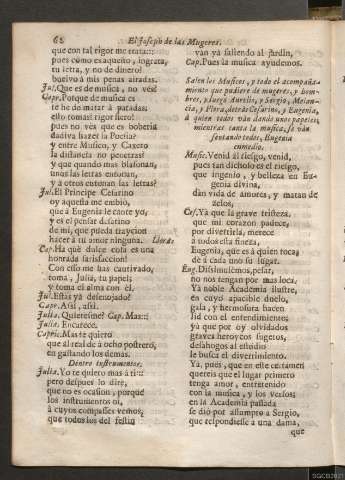 62 El Joseph de las Mugeres.
que con tal rigor me trata:::
pues cómo es aqueño, ingrata,
tu letra, y no de dinero?
buelvo à mis penas airadas.
Jul. Que es de musica, no vés?
Capr. Porque de musica es
te he de matar à patadas:
esto tomas? rigor fiero!
pues no vès que es boberìa
dadiva hazer la Poesìa?
y entre Musico, y Caxero
la distancia no penetras?
y que quando mas blasonan,
unos las letras entonan,
y à otros entonan las letras?
Jul. El Principe Cesarino
oy aquesta me embiò,
que à Eugenia le cante yo,
y es el pensar desatino
de mì, que pueda traycion
hacer à tu amor ninguna. Llora.
Cap. Ha què dulce cosa es una
honrada satisfaccion!
Con esso me has cautivado,
toma, Julia, tu papel;
y toma el alma con èl.
Jul. Estàs yà desenojado?
Capr. Assi, assi.
Julia. Quieresme? Cap. Mas:::
Julia. Encarece.
Capri. Mas te quiero
que al real de à ocho postrero,
en gastando los demas.
Dentro instrumentos.
Julia. Yo te quiero mas à ti::
pero despues lo dirè,
que no es ocasion, porque
los instrumentos oì,
à cuyos compasses vemos,
que todos los del festin
van yà saliendo al jardin,
Cap. Pues la musica ayudemos.
Salen los Musicos, y todo el acompaña-
miento que pudiere de mugeres, y hom-
bres, y luego Aurelio, y Sergio, Melan-
cia, y Flora, detràs Cesarino, y Eugenia,
à quien todos van dando unos papeles,
mientras canta la musica, se vàn
sentando todos, Eugenia
enmedio.
Music. Venid al riesgo, venid,
pues tan dichoso es el riesgo,
que ingenio, y belleza en Eu-
genia divina,
dàn vida de amores, y matan de
zelos,
Ces. Yà que la grave tristeza,
que mi corazon padece,
por divertirla, merece
à todos esta fineza,
Eugenia, que es à quien toca,
dè à cada uno su lugar.
Eug. Dissimulèmos, pesar,
no nos tengan por mas loca.
Ya noble Academia ilustre,
en cuyo apacible duelo,
gala, y hermosura hacen
lid con el entendimiento;
yà que por oy olvidados
graves heroycos sugetos,
desahogos al estudio
le busca el divertimento.
Ya, pues, que en este certamen
quereis que el lugar primero
tenga amor, entretenido
con la musica, y los versos;
en la Academia passada
se diò por assumpto a Sergio,
que respondiesse a una dama,
que
SGCB2021